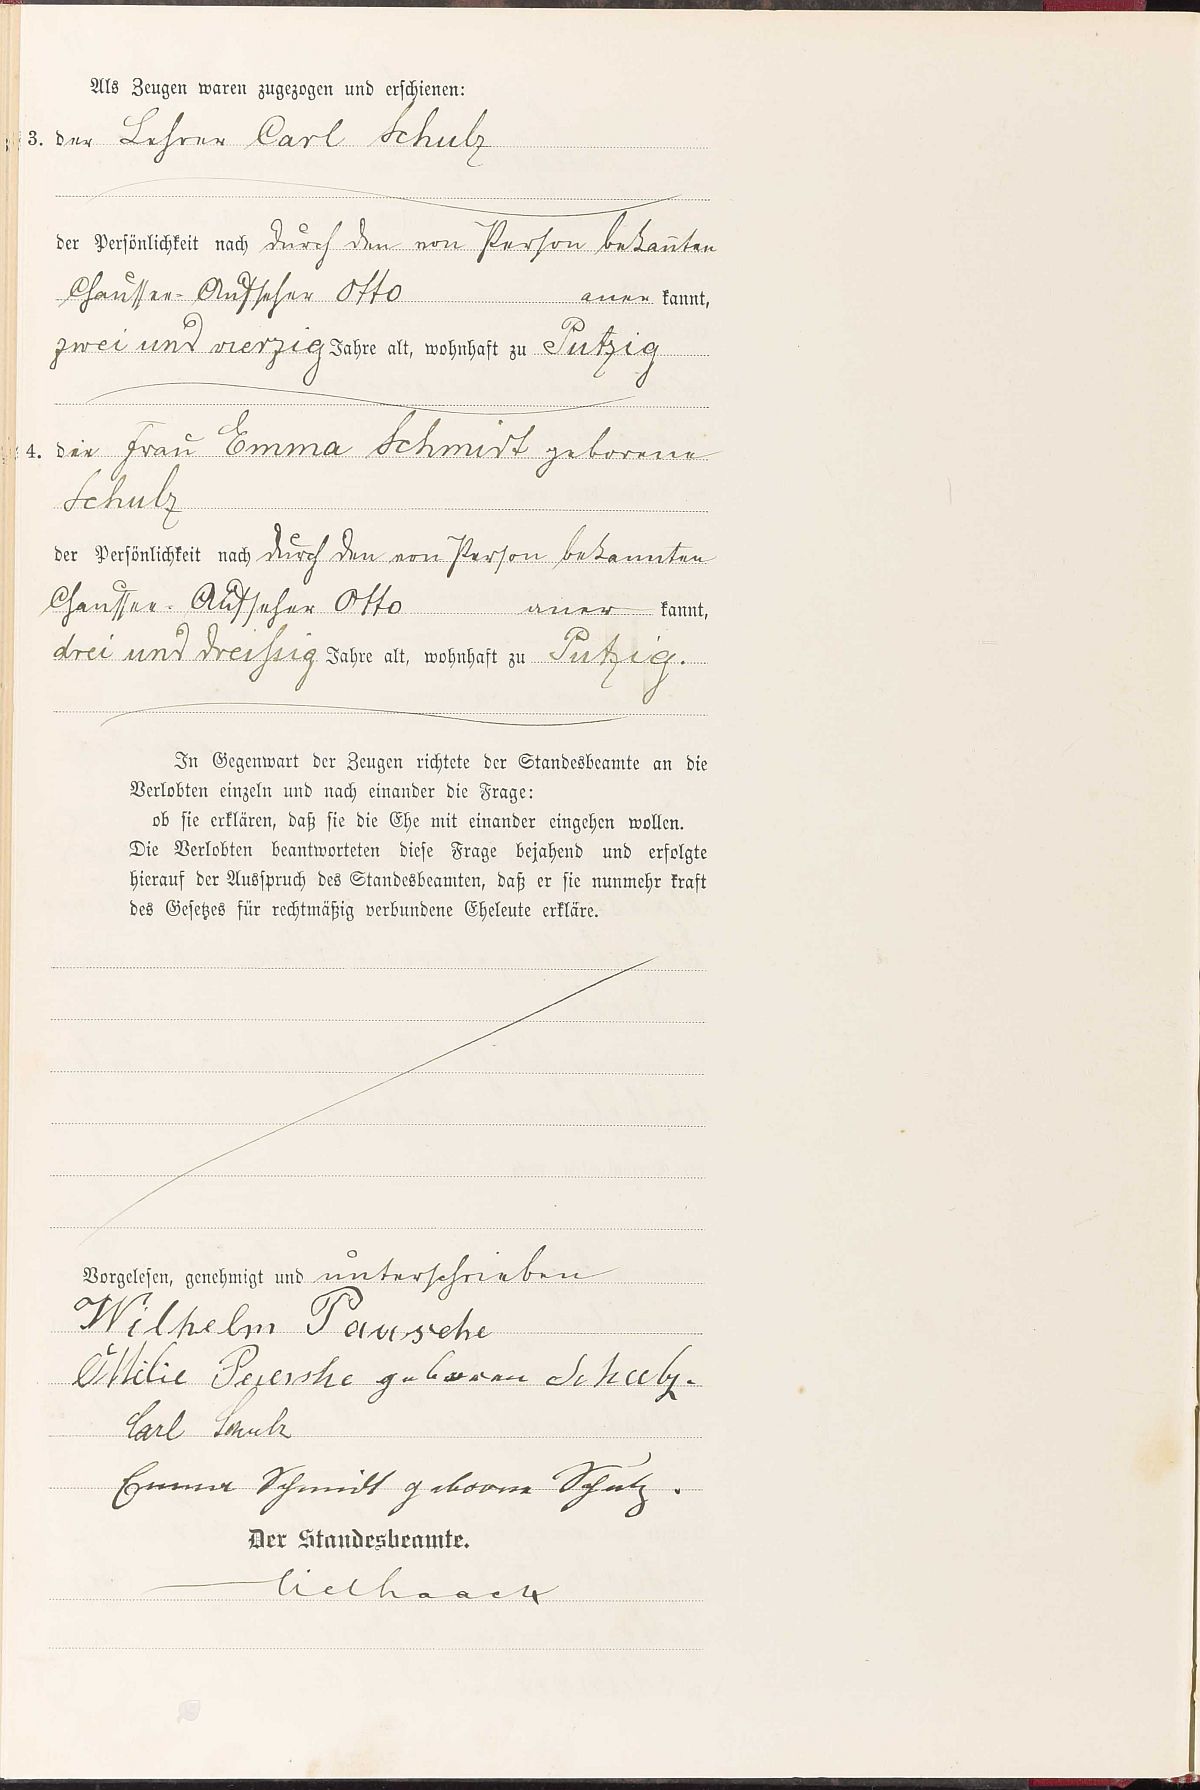 Als Zeugen waren zugezogen und erschienen:
3. der Lehrer Carl Schulz
der Persönlichkeit nach durch den von Person bekannten
Chaussee-Aufseher Otto aner kannt,
zwei und vierzig Jahre alt, wohnhaft zu Putzig
4. die Frau Emma Schmidt geborene
Schulz
der Persönlichkeit nach durch den von Person bekannten
Chaussee-Aufseher Otto aner kannt,
drei und dreißig Jahre alt, wohnhaft zu Putzig.
In Gegenwart der Zeugen richtete der Standesbeamte an die
Verlobten einzeln und nach einander die Frage:
ob sie erklären, daß sie die Ehe mit einander eingehen wollen.
Die Verlobten beantworteten diese Frage bejahend und erfolgte
hierauf der Ausspruch des Standesbeamten, daß er sie nunmehr kraft
des Gesetzes für rechtmäßig verbundene Eheleute erkläre.
Vorgelesen, genehmigt und unterschrieben
Wilhelm Pausche
Ottilie geboren Schulz.
Carl Schulz
Emma Schmidt geborne Schulz.
Der Standesbeamte.